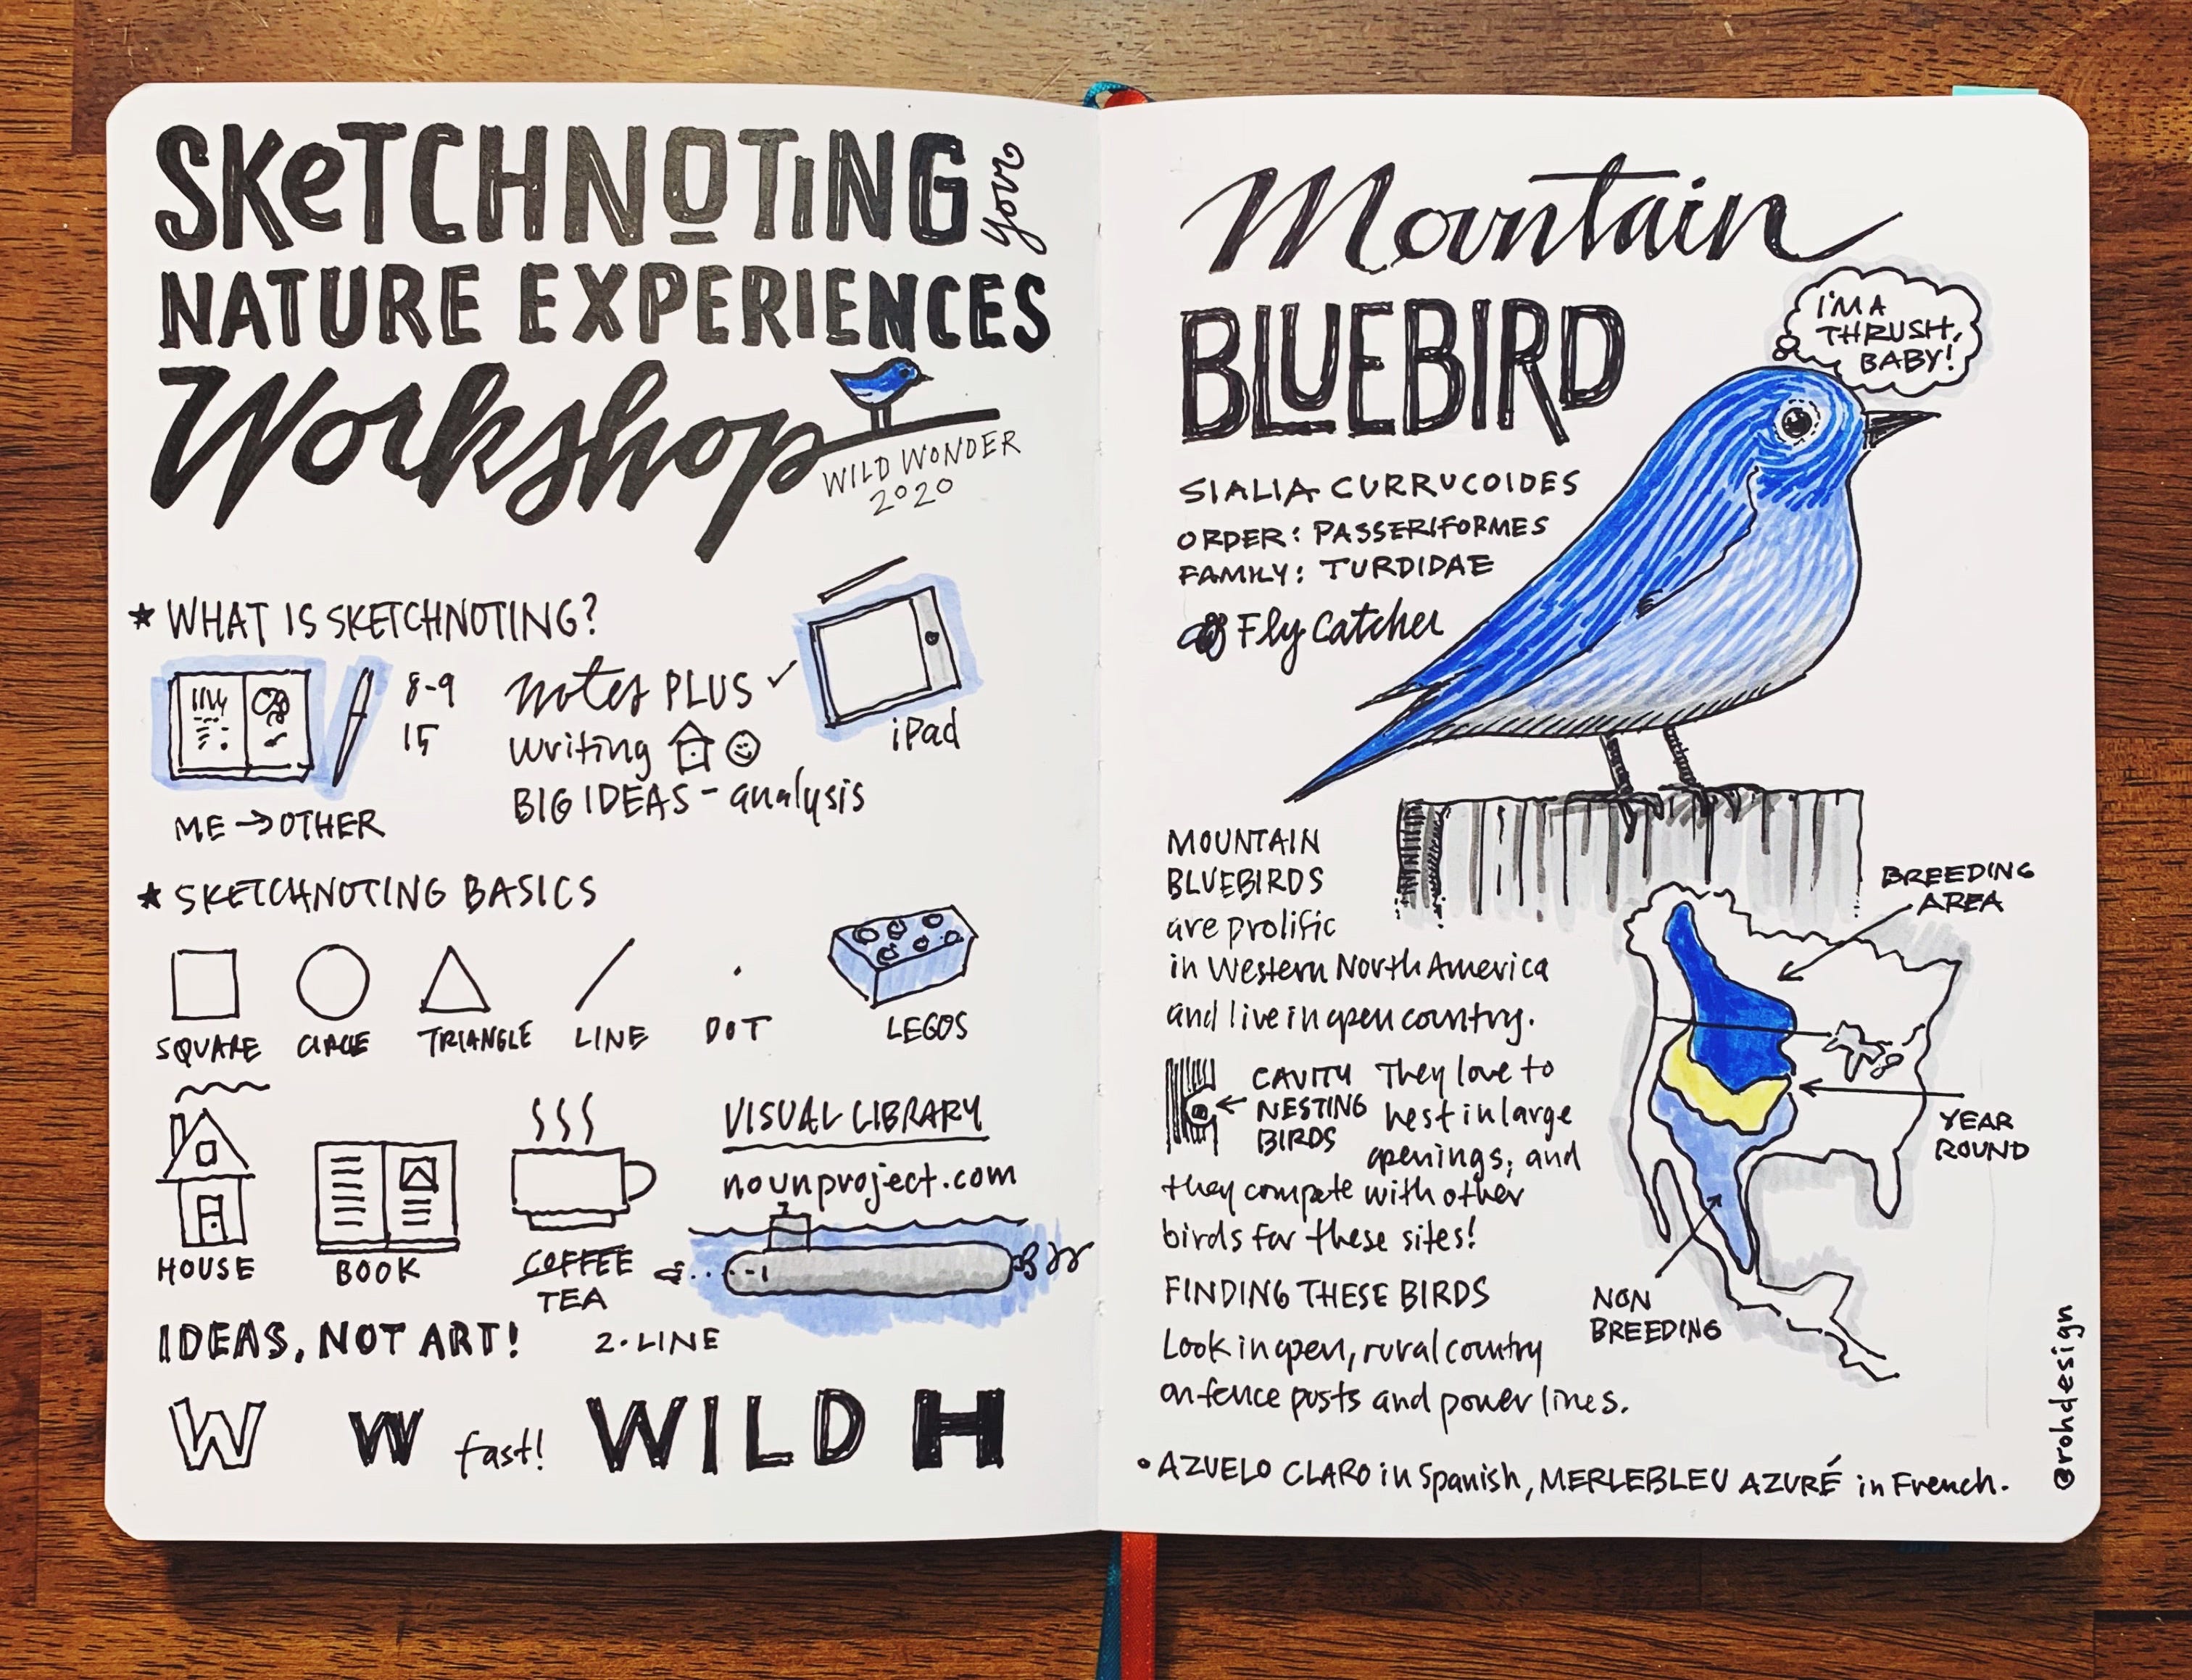 SKeTCHNOTiNG your
NATURE EXPERIENCES
Workshop
WILD WONDER
2020
★ WHAT IS SKETCHNOTING?
8-9
15
ME → OTHER
notes PLUS ✓
writing
BIG IDEAS - analysis
iPad
★ SKETCHNOTING BASICS
SQUARE
CIRCLE
TRIANGLE
LINE
DOT
LEGOS
HOUSE
BOOK
COFFEE
TEA
VISUAL LIBRARY
nounproject.com
IDEAS, NOT ART!
2·LINE
W W fast! WILD H
Mountain
BLUEBIRD
I'M A
THRUSH,
BABY!
SIALIA CURRUCOIDES
ORDER: PASSERIFORMES
FAMILY: TURDIDAE
Fly Catcher
MOUNTAIN
BLUEBIRDS
are prolific
in Western North America
and live in open country.
CAVITY
NESTING
BIRDS
They love to
nest in large
openings, and
they compete with other
birds for these sites!
FINDING THESE BIRDS
Look in open, rural country
on fence posts and power lines.
BREEDING
AREA
YEAR
ROUND
NON
BREEDING
• AZUELO CLARO in Spanish, MERLEBLEU AZURÉ in French.
@rohdesign